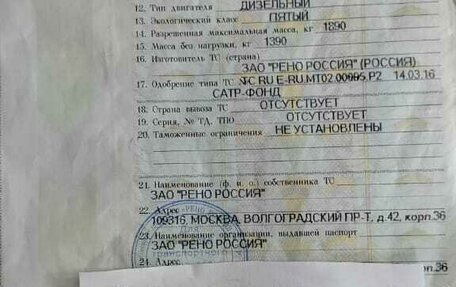 12. Тип двигателя ДИЗЕЛЬНЫЙ
13. Экологический класс ПЯТЫЙ
14. Разрешенная максимальная масса, кг 1890
15. Масса без нагрузки, кг 1390
16. Изготовитель ТС (страна)
ЗАО "РЕНО РОССИЯ" (РОССИЯ)
17. Одобрение типа ТС № ТС RU E-RU.МТ02.00095.Р2 14.03.16
САТР-ФОНД
18. Страна вывоза ТС ОТСУТСТВУЕТ
19. Серия, № ТД, ТПО ОТСУТСТВУЕТ
20. Таможенные ограничения НЕ УСТАНОВЛЕНЫ
21. Наименование (ф. и. о.) собственника ТС
ЗАО "РЕНО РОССИЯ"
22. Адрес
109316, МОСКВА, ВОЛГОГРАДСКИЙ ПР-Т, д.42, корп.36
23. Наименование организации, выдавшей паспорт
ЗАО "РЕНО РОССИЯ"
24. Адрес
п.36